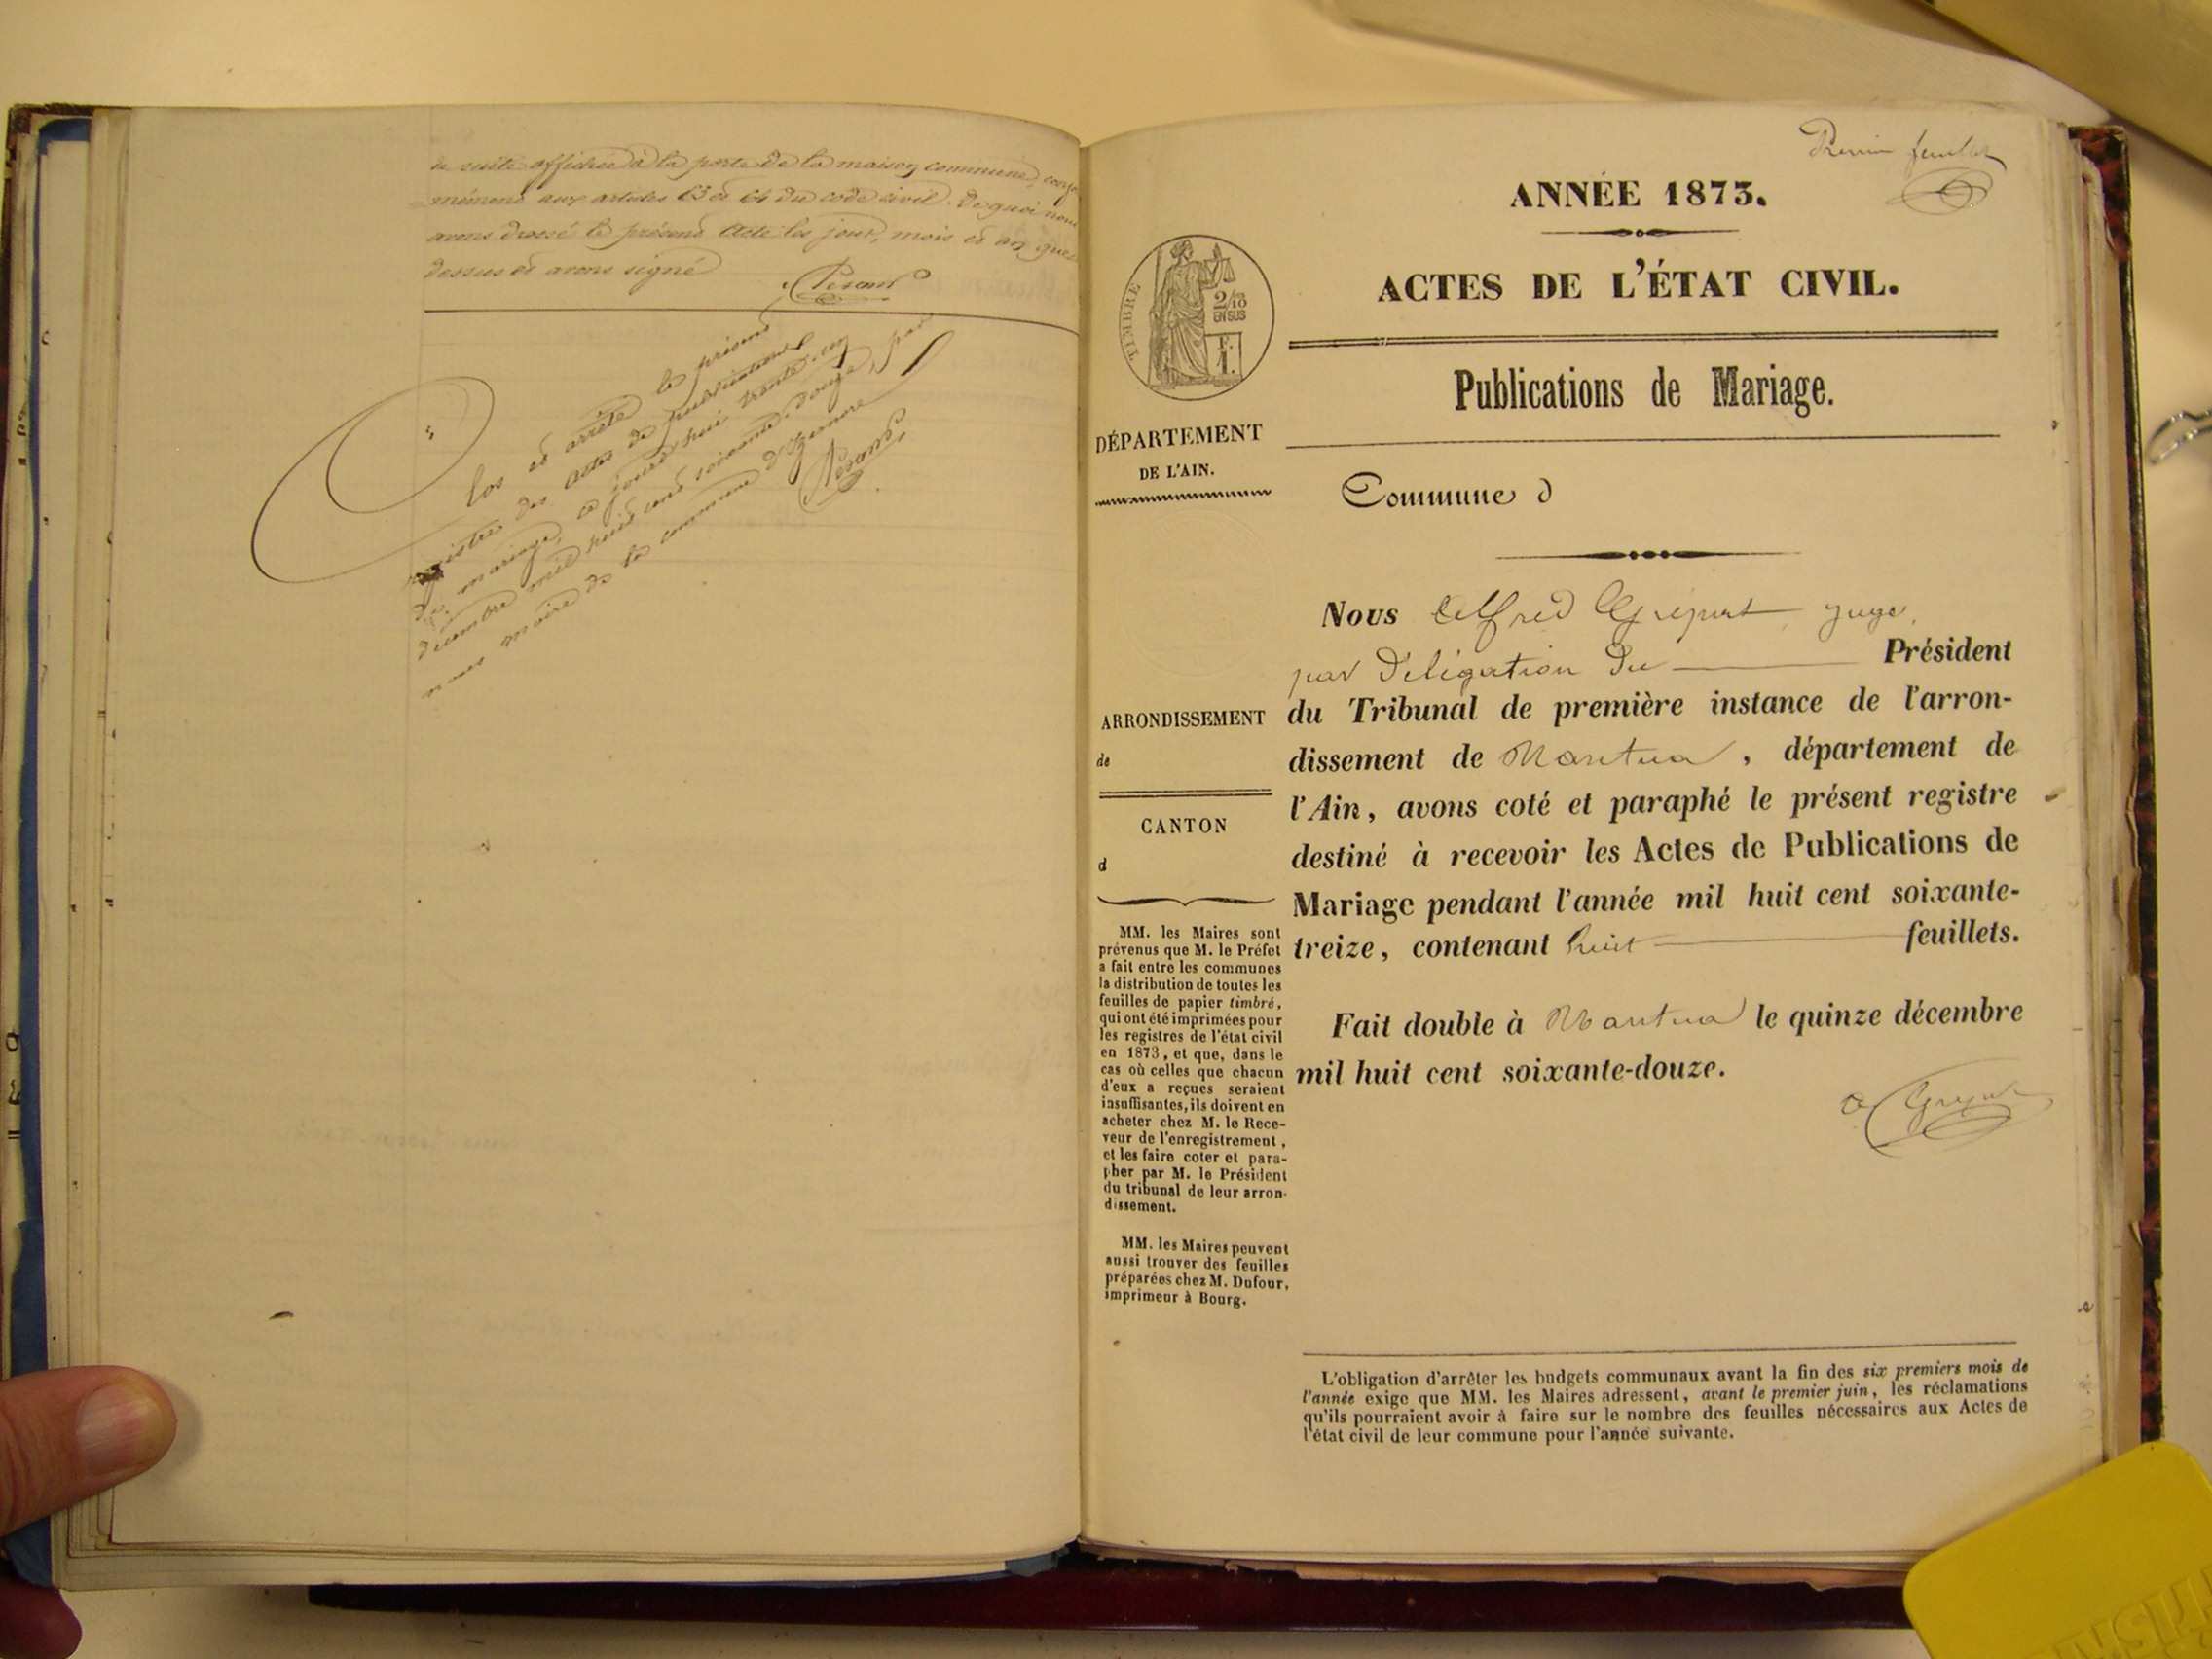 de suite affichée à la porte de la maison commune, confor
mément aux articles 63 et 64 du code civil. De quoi nous
avons dressé le présent Acte les jour, mois et an que
dessus et avons signé
Clos et arrêté le présent
registre des actes de publications
de mariage, ce jourd'hui trente-un
décembre mil huit cent soixante-douze, par
nous maire de la commune d'Izernore
Premier feuillet
ANNÉE 1873.
ACTES DE L'ÉTAT CIVIL.
Publications de Mariage.
TIMBRE
2/10
EN SUS
F.
1.
DÉPARTEMENT
DE L'AIN.
Commune d
ARRONDISSEMENT
de
CANTON
d
MM. les Maires sont
prévenus que M. le Préfet
a fait entre les communes
la distribution de toutes les
feuilles de papier timbré,
qui ont été imprimées pour
les registres de l'état civil
en 1873, et que, dans le
cas où celles que chacun
d'eux a reçues seraient
insuffisantes, ils doivent en
acheter chez M. le Rece-
veur de l'enregistrement,
et les faire coter et para-
pher par M. le Président
du tribunal de leur arron-
dissement.
MM. les Maires peuvent
aussi trouver des feuilles
préparées chez M. Dufour,
imprimeur à Bourg.
Nous Alfred juge,
par Délégation du Président
du Tribunal de première instance de l'arron-
dissement de Nantua, département de
l'Ain, avons coté et paraphé le présent registre
destiné à recevoir les Actes de Publications de
Mariage pendant l'année mil huit cent soixante-
treize, contenant huit feuillets.
Fait double à Nantua le quinze décembre
mil huit cent soixante-douze.
L'obligation d'arrêter les budgets communaux avant la fin des six premiers mois de
l'année exige que MM. les Maires adressent, avant le premier juin, les réclamations
qu'ils pourraient avoir à faire sur le nombre des feuilles nécessaires aux Actes de
l'état civil de leur commune pour l'année suivante.